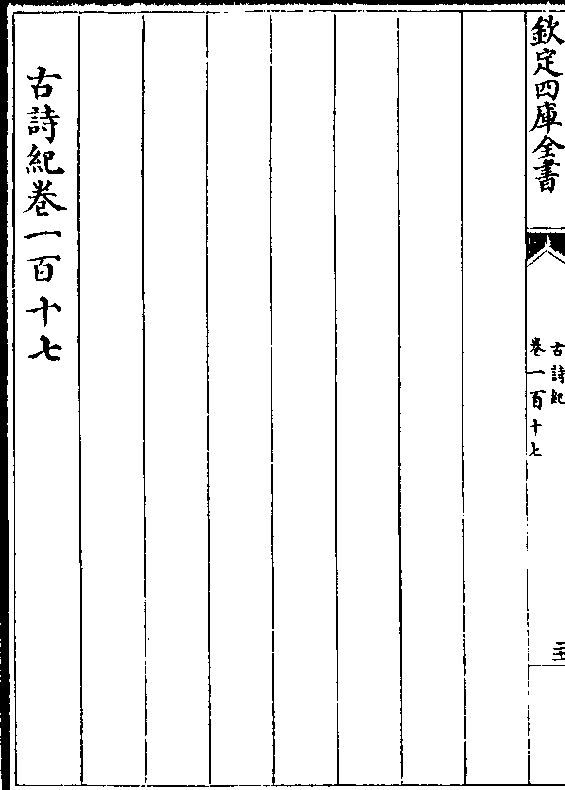 欽定四庫全書
古詩紀
卷一百十七
古詩紀卷一百十七